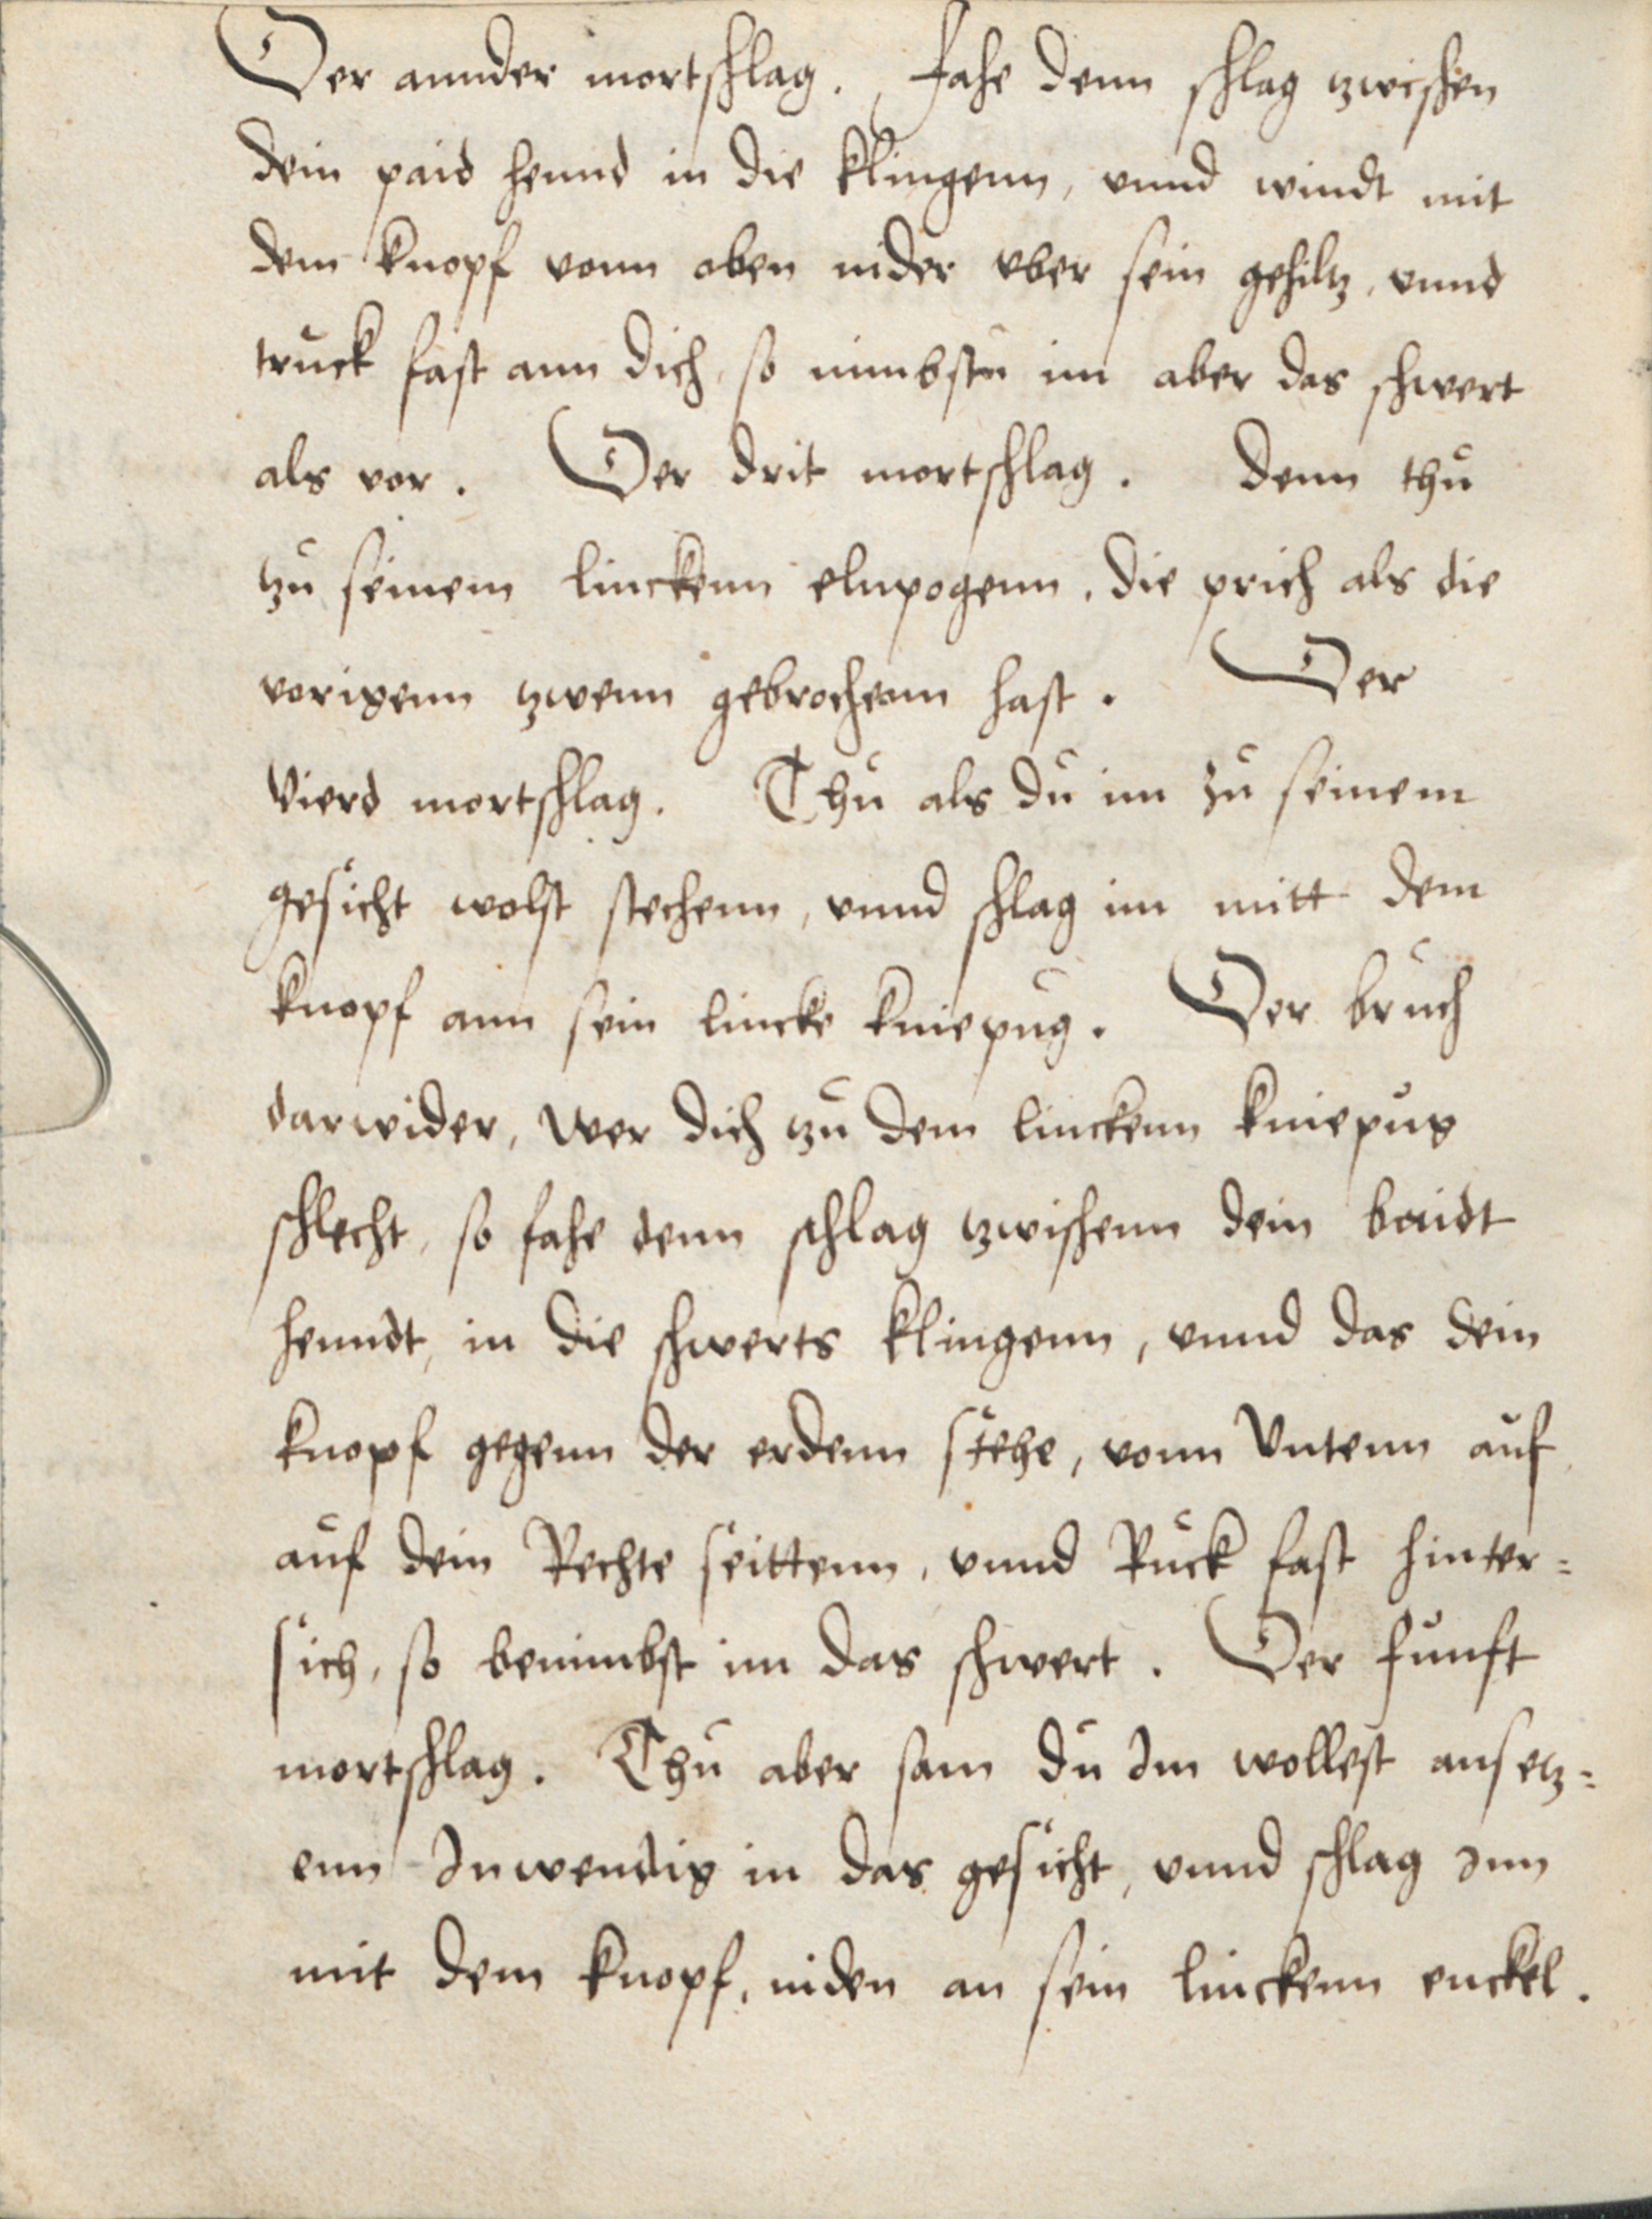 Der annder mortschlag. Fahe denn schlag zwischen
dein paid hennd in die klingenn, vnnd windt mit
dem knopf vonn oben nider vber sein gehiltz, vnnd
truck fast ann dich, so nimbstu im aber das schwert
als vor. Der drit mortschlag. Denn thu
zu seinem linckenn elnpogenn, die prich als die
vorigenn zwenn gebrochenn hast. Der
Vierd mortschlag. Thu als du im zu seinem
gesicht wolst stechenn, vnnd schlag im mitt dem
knopf ann sein lincke kniepug. Der bruch
darwider, wer dich zu dem linckenn kniepug
schlecht, so fahe denn schlag zwischenn dein baidt
henndt, in die schwerts klingenn, vnnd das dein
knopf gegenn der erdenn stehe, vonn Vntenn auf
auf dein Rechte seittenn, vnnd Ruck fast hinter=
sich, so benimbst im das schwert. Der funft
mortschlag. Thu aber sam du Im wollest ansetz=
enn Inwendig in das gesicht, vnnd schlag Inn
mit dem knopf, niden an sein linckenn enckel.